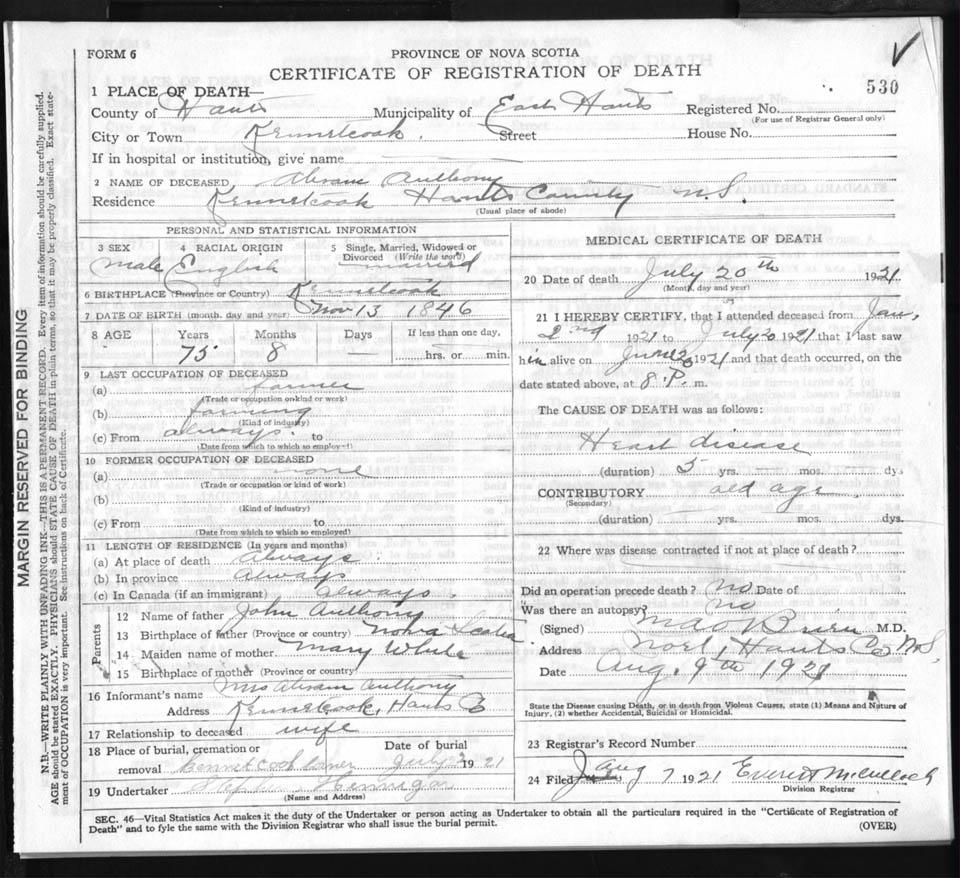 FORM 6
PROVINCE OF NOVA SCOTIA
CERTIFICATE OF REGISTRATION OF DEATH
530
1 PLACE OF DEATH—
County of Hants Municipality of East Hants Registered No.
(For use of Registrar General only)
City or Town Kennetcook. Street House No.
If in hospital or institution, give name
2 NAME OF DECEASED Abram Anthony
Residence Kennetcook Hants County N.S.
(Usual place of abode)
PERSONAL AND STATISTICAL INFORMATION
3 SEX 4 RACIAL ORIGIN 5 Single, Married, Widowed or Divorced (Write the word)
Male English married
6 BIRTHPLACE (Province or Country) Kennetcook
7 DATE OF BIRTH (month, day and year) Nov 13 1846
8 AGE Years Months Days If less than one day,
75 8 — hrs. or min.
9 LAST OCCUPATION OF DECEASED
(a) farmer
(Trade or occupation or kind or work)
(b) farming
(Kind of industry)
(c) From always to
(Date from which to which so employed)
10 FORMER OCCUPATION OF DECEASED
(a) none
(Trade or occupation or kind of work)
(b)
(Kind of industry)
(c) From to
(Date from which to which so employed)
11 LENGTH OF RESIDENCE (In years and months)
(a) At place of death always
(b) In province always
(c) In Canada (if an immigrant) always.
Parents
12 Name of father John Anthony
13 Birthplace of father (Province or country) Nova Scotia
14 Maiden name of mother Mary White
15 Birthplace of mother (Province or country)
16 Informant's name Mrs Abram Anthony
Address Kennetcook, Hants Co
17 Relationship to deceased wife
18 Place of burial, cremation or removal Kennetcook Corner Date of burial July 1921
19 Undertaker Hennigar
(Name and Address)
MEDICAL CERTIFICATE OF DEATH
20 Date of death July 20th 1921
(Month, day and year)
21 I HEREBY CERTIFY, that I attended deceased from Jan.
2nd 1921 to July 20 1921 that I last saw
him alive on 1921 and that death occurred, on the
date stated above, at 8 P. m.
The CAUSE OF DEATH was as follows:
Heart disease
(duration) 5 yrs. — mos. dys
CONTRIBUTORY old age
(Secondary)
(duration) yrs. mos. dys.
22 Where was disease contracted if not at place of death?
Did an operation precede death? no Date of
Was there an autopsy? no
(Signed) M.D.
Address Noel, Hants Co N.S.
Date Aug. 9th 1921
State the Disease causing Death, or in death from Violent Causes, state (1) Means and Nature of
Injury, (2) whether Accidental, Suicidal or Homicidal.
23 Registrar's Record Number
24 Filed Aug 7 1921 Everett McCulloch
Division Registrar
SEC. 46—Vital Statistics Act makes it the duty of the Undertaker or person acting as Undertaker to obtain all the particulars required in the "Certificate of Registration of
Death" and to fyle the same with the Division Registrar who shall issue the burial permit.
(OVER)
MARGIN RESERVED FOR BINDING
N.B.—WRITE PLAINLY WITH UNFADING INK—THIS IS A PERMANENT RECORD. Every item of information should be carefully supplied.
AGE should be stated EXACTLY. PHYSICIANS should STATE CAUSE OF DEATH in plain terms, so that it may be properly classified. Exact state-
ment of OCCUPATION is very important. See instructions on back of Certificate.